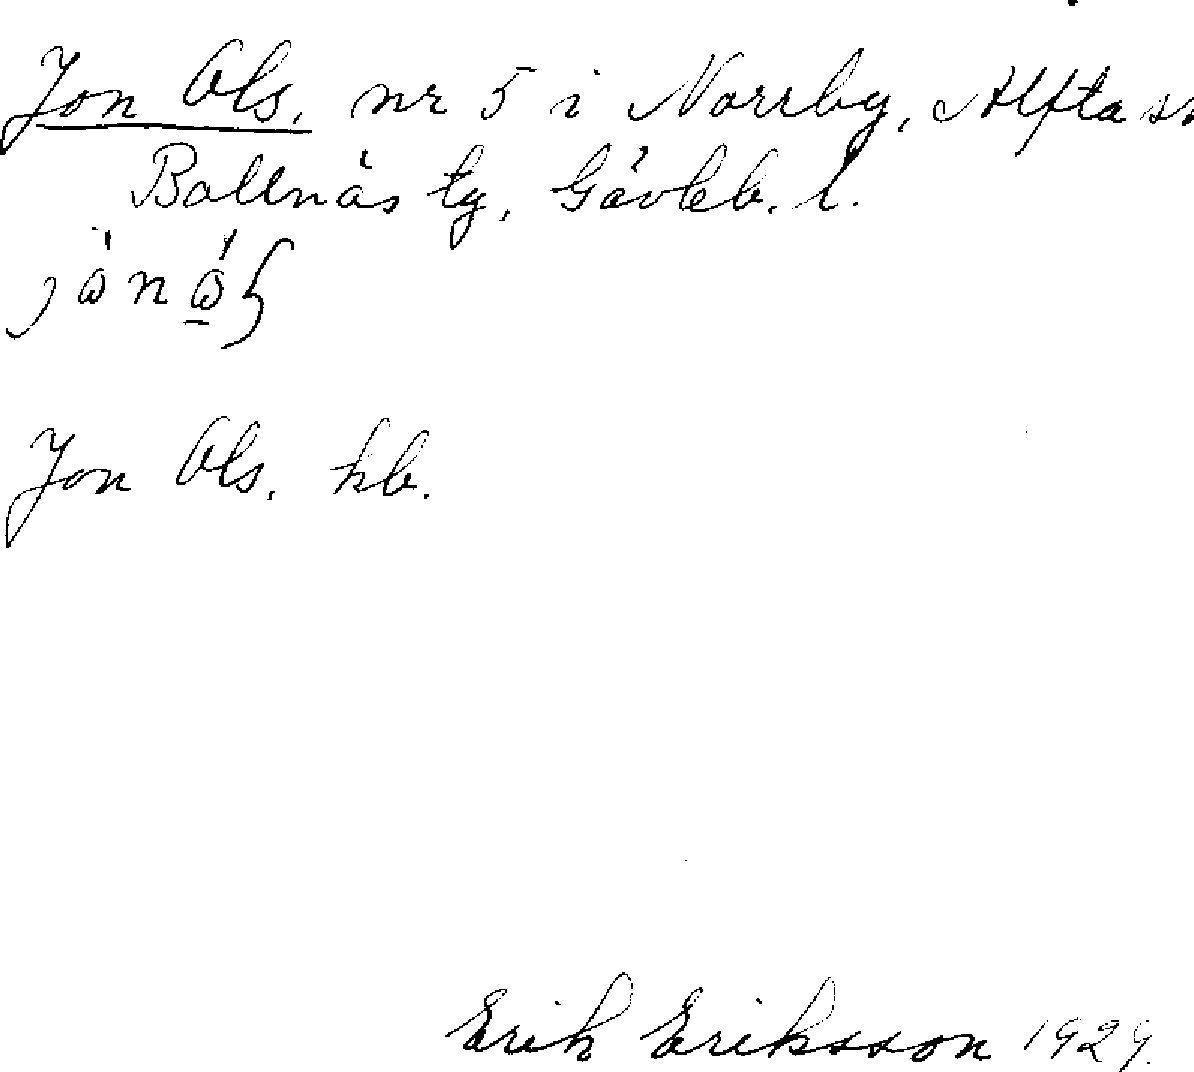 Jon Ols, nr 5 i Norrby, Alfta sn
Bollnäs tg, Gävleb. l.
Jon Ols, kb.
Erik Eriksson 1929.